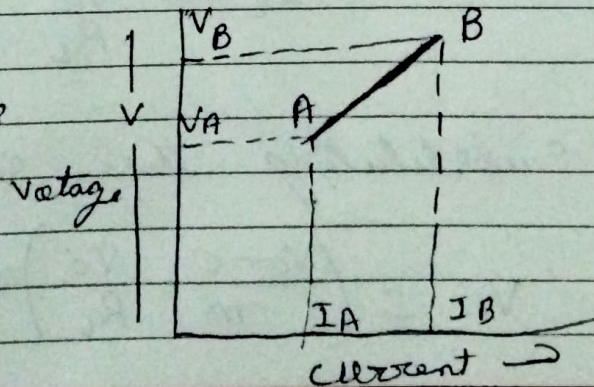 VB
B
VA
A
V
Voltage
IA
IB
Current →